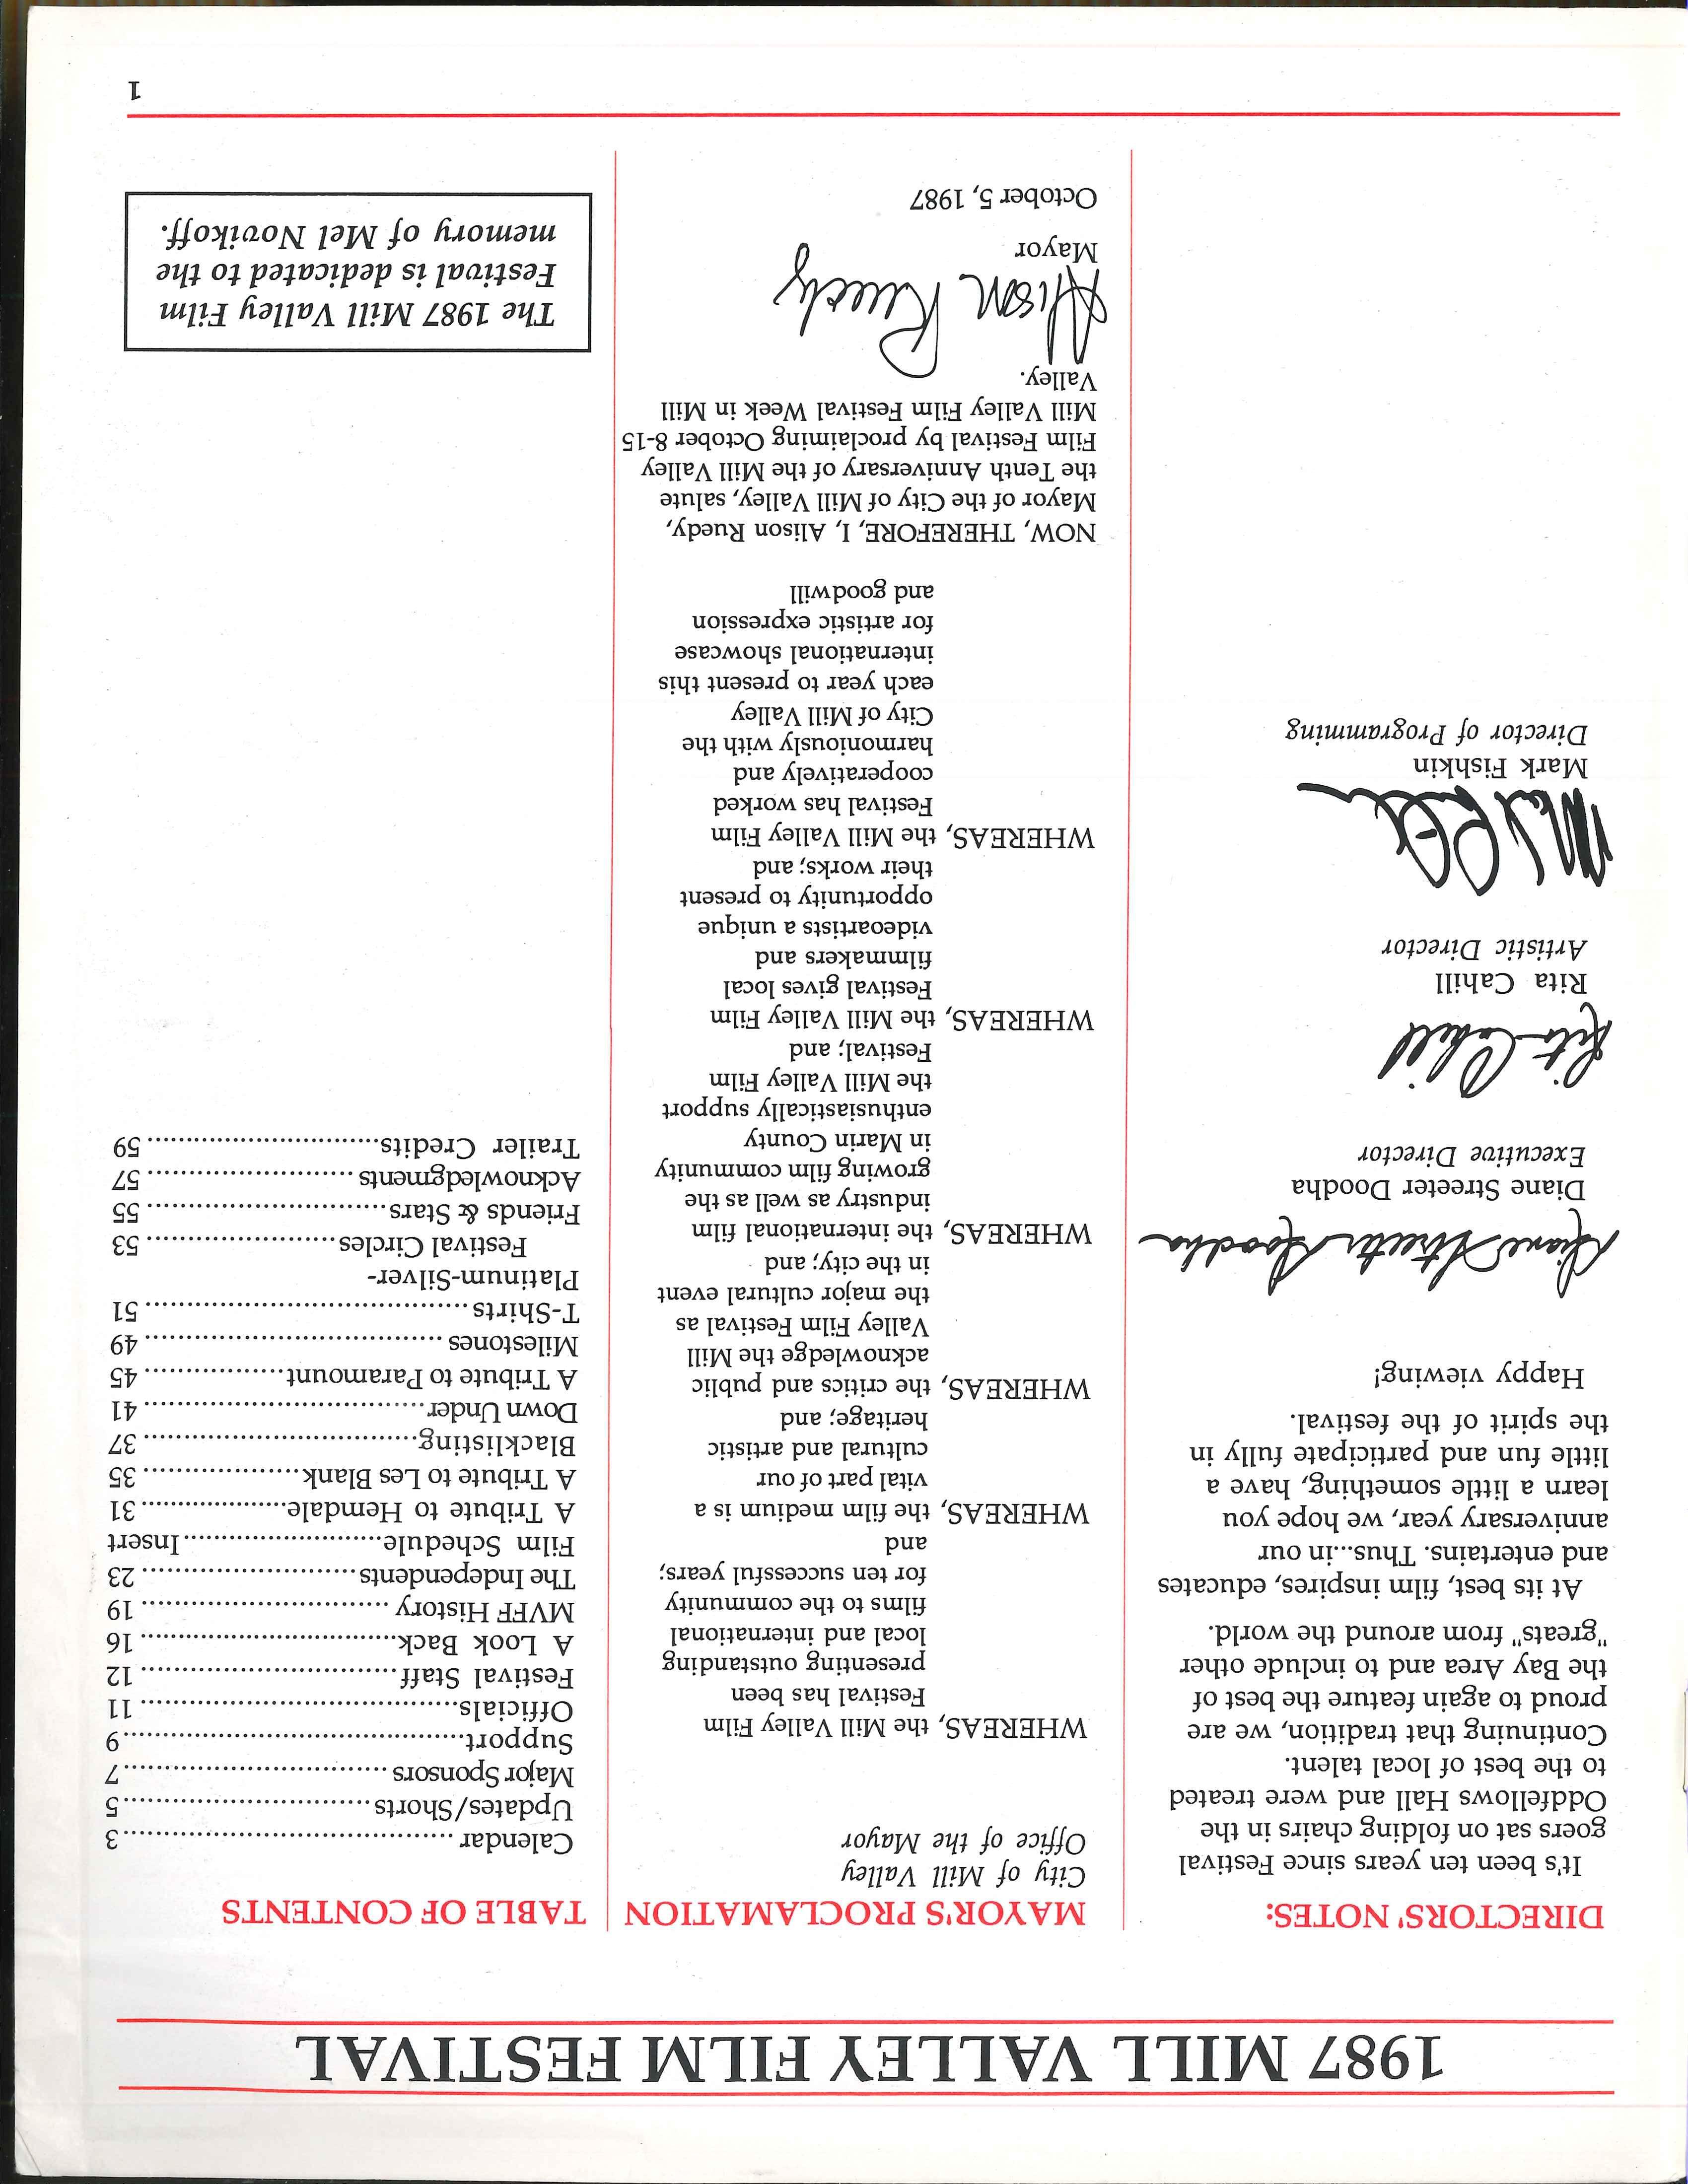 1987 MILL VALLEY FILM FESTIVAL
DIRECTORS' NOTES:
It's been ten years since Festival
goers sat on folding chairs in the
Oddfellows Hall and were treated
to the best of local talent.
Continuing that tradition, we are
proud to again feature the best of
the Bay Area and to include other
"greats" from around the world.
At its best, film inspires, educates
and entertains. Thus...in our
anniversary year, we hope you
learn a little something, have a
little fun and participate fully in
the spirit of the festival.
Happy viewing!
Diane Streeter Doodha
Diane Streeter Doodha
Executive Director
Rita Cahill
Rita Cahill
Artistic Director
Mark Fishkin
Director of Programming
MAYOR'S PROCLAMATION
City of Mill Valley
Office of the Mayor
WHEREAS, the Mill Valley Film
Festival has been
presenting outstanding
local and international
films to the community
for ten successful years;
and
WHEREAS, the film medium is a
vital part of our
cultural and artistic
heritage; and
WHEREAS, the critics and public
acknowledge the Mill
Valley Film Festival as
the major cultural event
in the city; and
WHEREAS, the international film
industry as well as the
growing film community
in Marin County
enthusiastically support
the Mill Valley Film
Festival; and
WHEREAS, the Mill Valley Film
Festival gives local
filmmakers and
videoartists a unique
opportunity to present
their works; and
WHEREAS, the Mill Valley Film
Festival has worked
cooperatively and
harmoniously with the
City of Mill Valley
each year to present this
international showcase
for artistic expression
and goodwill
NOW, THEREFORE, I, Alison Ruedy,
Mayor of the City of Mill Valley, salute
the Tenth Anniversary of the Mill Valley
Film Festival by proclaiming October 8-15
Mill Valley Film Festival Week in Mill
Valley.
Alison Ruedy
Mayor
October 5, 1987
TABLE OF CONTENTS
Calendar.....3
Updates/Shorts.....5
Major Sponsors.....7
Support.....9
Officials.....11
Festival Staff.....12
A Look Back.....16
MVFF History.....19
The Independents.....23
Film Schedule.....Insert
A Tribute to Hemdale.....31
A Tribute to Les Blank.....35
Blacklisting.....37
Down Under.....41
A Tribute to Paramount.....45
Milestones.....49
T-Shirts.....51
Platinum-Silver-
Festival Circles.....53
Friends & Stars.....55
Acknowledgments.....57
Trailer Credits.....59
The 1987 Mill Valley Film
Festival is dedicated to the
memory of Mel Novikoff.
1